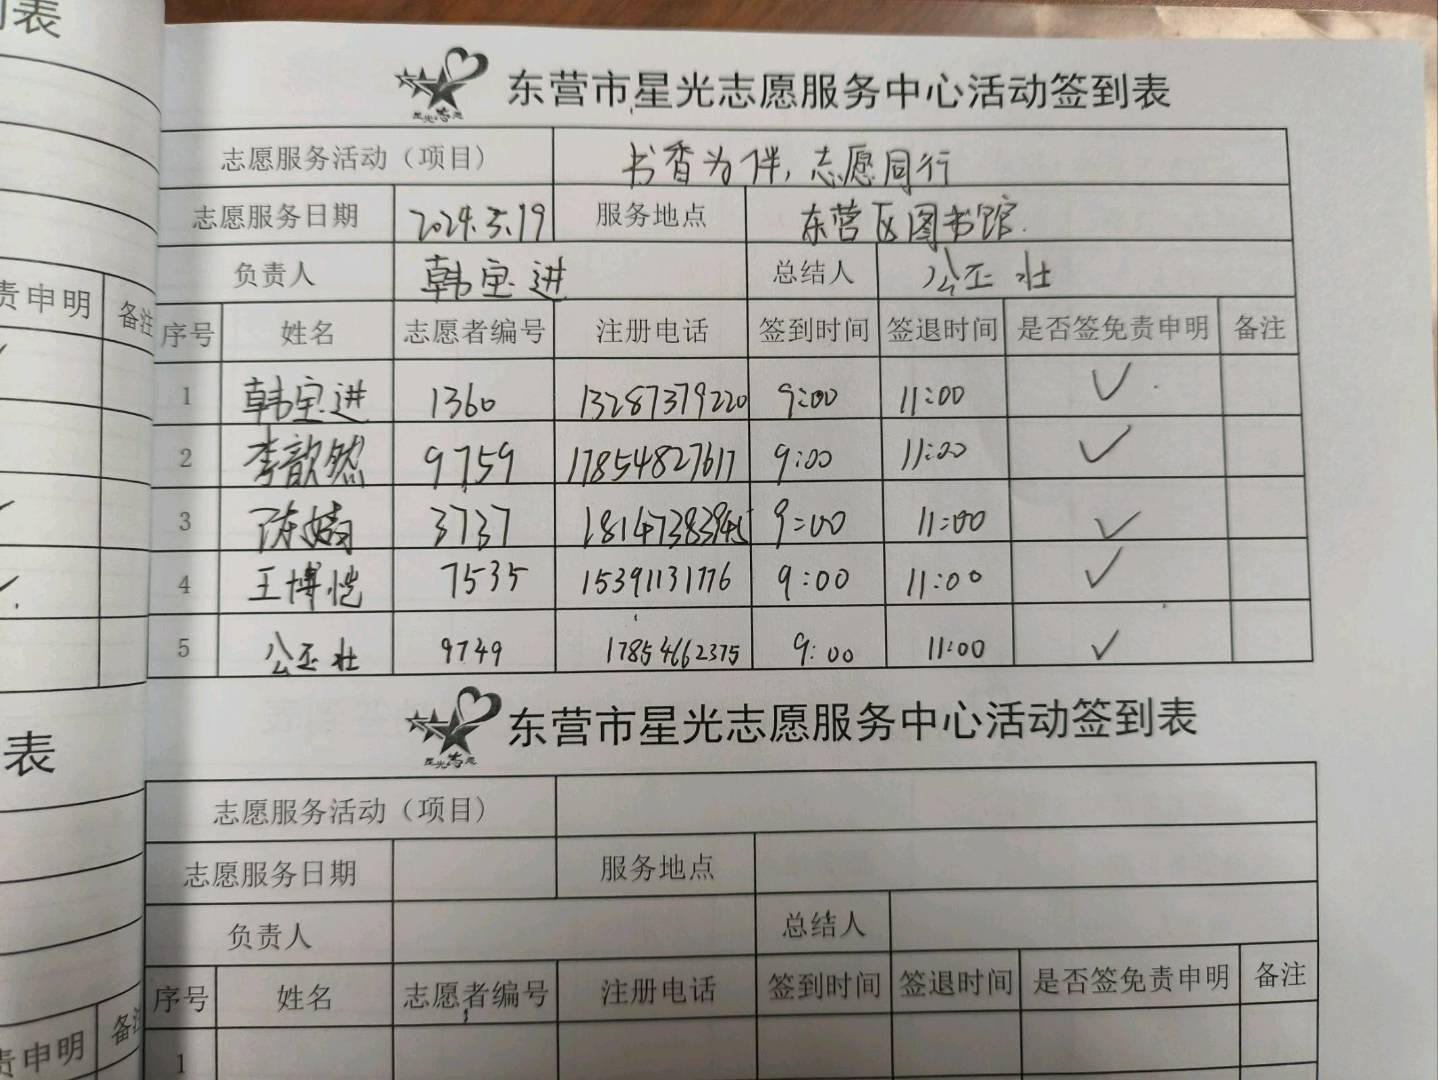 表
责申明 备注
表
责申明
东营市星光志愿服务中心活动签到表
志愿服务活动（项目） 书香为伴,志愿同行
志愿服务日期 2024.5.19 服务地点 东营区图书馆.
负责人 韩宝进 总结人 公丕壮
序号 姓名 志愿者编号 注册电话 签到时间 签退时间 是否签免责申明 备注
1 韩宝进 1360 13287379220 9:00 11:00 ✓
2 李歆然 9759 17854827617 9:00 11:00 ✓
3 陈婧 3737 18147383945 9:00 11:00 ✓
4 王博恺 7535 15391131776 9:00 11:00 ✓
5 公丕壮 9749 17854662375 9:00 11:00 ✓
东营市星光志愿服务中心活动签到表
志愿服务活动（项目）
志愿服务日期 服务地点
负责人 总结人
序号 姓名 志愿者编号 注册电话 签到时间 签退时间 是否签免责申明 备注
1